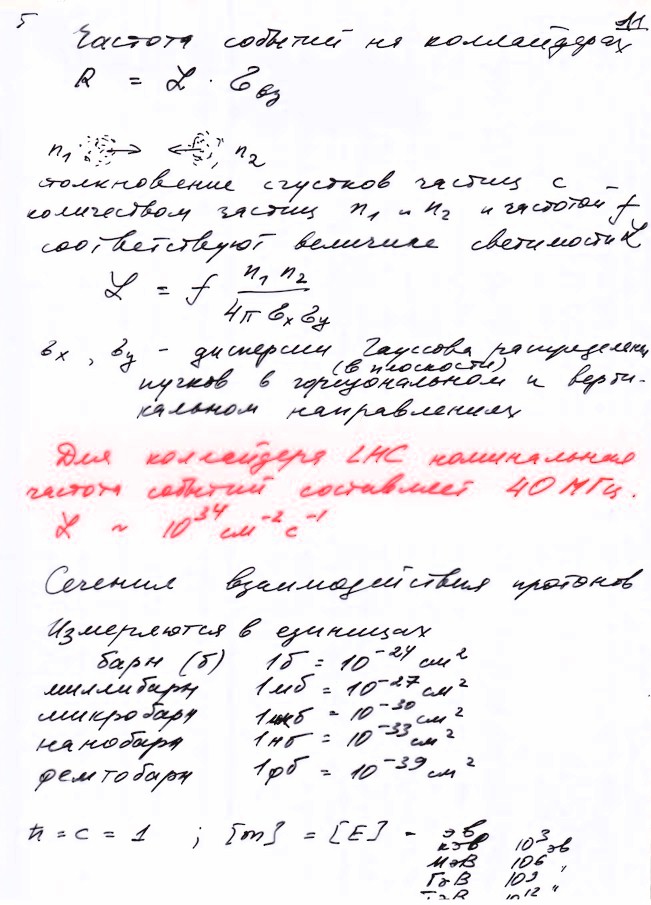 5 11
Частота событий на коллайдерах
R = ℒ · σвз
n₁ n₂
столкновение сгустков частиц с
количеством частиц n₁ и n₂ и частотой f
соответствуют величине светимости ℒ
ℒ = f n₁ n₂ / 4π σₓ σᵧ
σₓ, σᵧ – дисперсии Гауссова распределени
(в плоскости)
пучков в горизональном и верти-
кальном направлениях
Для коллайдера LHC номинальная
частота событий составляет 40 МГц.
ℒ ~ 10³⁴ см⁻² с⁻¹
Сечения взаимодействия протонов
Измеряются в единицах
барн (б) 1б = 10⁻²⁴ см²
миллибарн 1мб = 10⁻²⁷ см²
микробарн 1мкб = 10⁻³⁰ см²
нанобарн 1нб = 10⁻³³ см²
фемтобарн 1фб = 10⁻³⁹ см²
ħ = c = 1 ; [m] = [E] – эв
кэв 10³ эв
МэВ 10⁶ "
ГэВ 10⁹
ТэВ 10¹² "